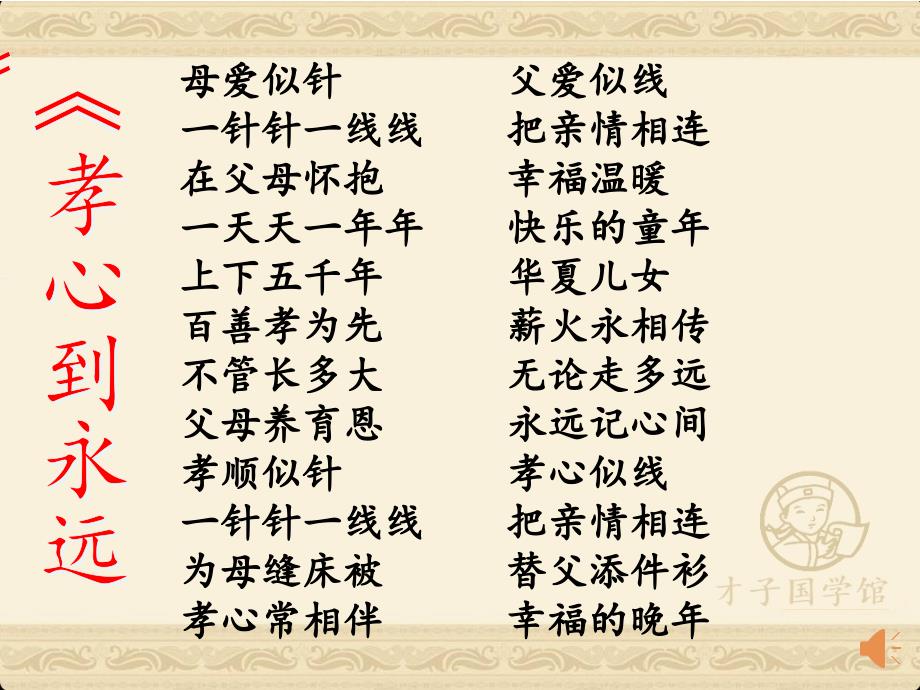 《孝心到永远
母爱似针 父爱似线
一针针一线线 把亲情相连
在父母怀抱 幸福温暖
一天天一年年 快乐的童年
上下五千年 华夏儿女
百善孝为先 薪火永相传
不管长多大 无论走多远
父母养育恩 永远记心间
孝顺似针 孝心似线
一针针一线线 把亲情相连
为母缝床被 替父添件衫
孝心常相伴 幸福的晚年
才子国学馆